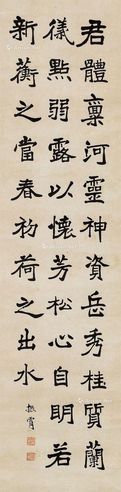 君體稟河靈神資岳秀桂質蘭
儀點弱露以懷芳松心自明若
新蘅之當春初荷之出水
振霄